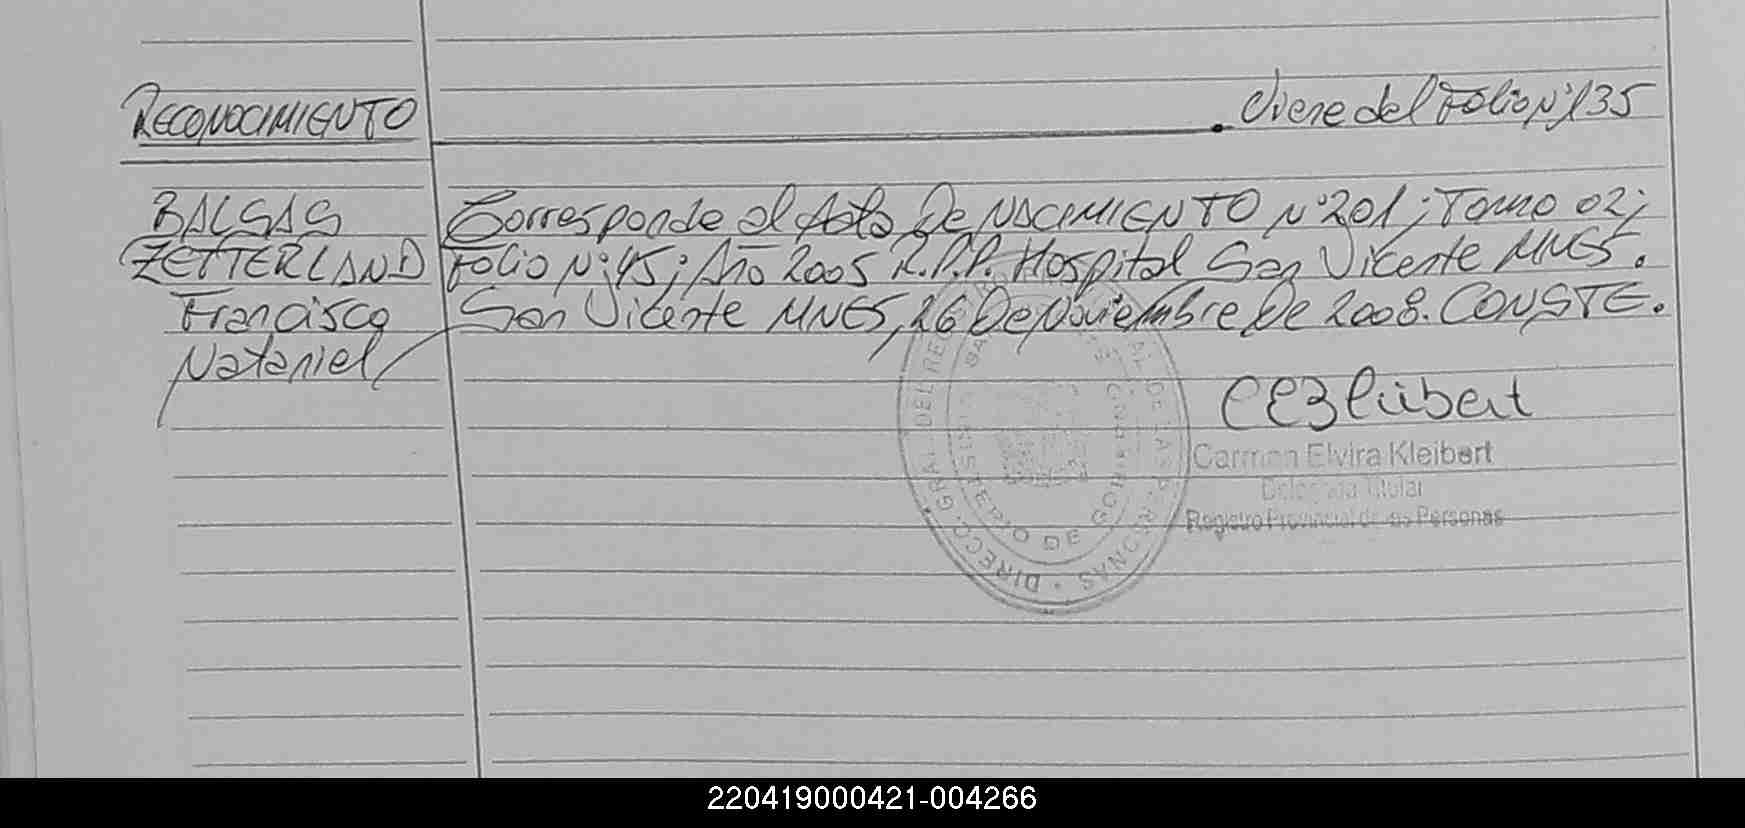 RECONOCIMIENTO . Viene del Folio Nº 135
BALSAS Corresponde al Acta De NACIMIENTO Nº 201; Tomo 02;
ZETTERLAND Folio Nº 45; Año 2005 R.P.P. Hospital San Vicente MNES.
Francisco San Vicente MNES, 26 De Noviembre De 2008. CONSTE.
Nataniel
Carmen Elvira Kleibert
Delegada Titular
Registro Provincial de las Personas
DIRECC. GRAL. DEL REG PROVINCIAL DE LAS PERSONAS
MINISTERIO DE GOBIERNO
220419000421-004266